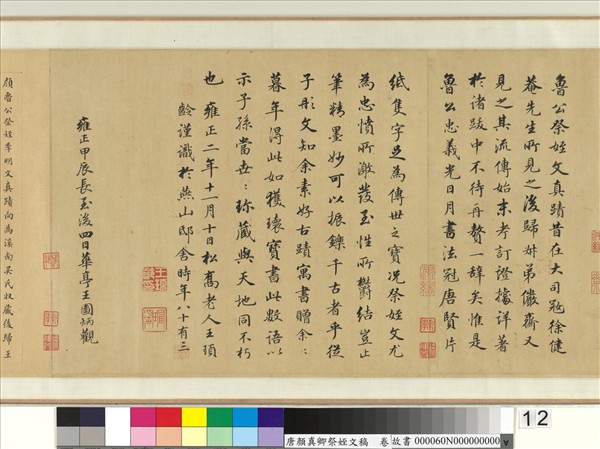 魯公祭姪文真蹟昔在大司寇徐健
菴先生所見之後歸叔弟儼齋又
見之其流傳始末考訂證據詳著
於諸跋中不待再贅一辭矣惟是
魯公忠義光日月書法冠唐賢片
紙隻字足為傳世之寶況祭姪文尤
為忠憤所激發至性所鬱結豈止
筆精墨妙可以振鑠千古者乎從
子彤文知余素好古蹟寓書贈余〻
暮年得此如獲瓌寶書此數語以
示子孫當世〻珍藏與天地同不朽
也雍正二年十一月十日松喬老人王頊
齡謹識於燕山邸舍時年八十有三
雍正甲辰長至後四日華亭王圖炳觀
顏魯公祭姪季明文真蹟向為溪南吳氏收藏後歸王
12
唐顏真卿祭姪文稿 卷 故書 000060N000000000